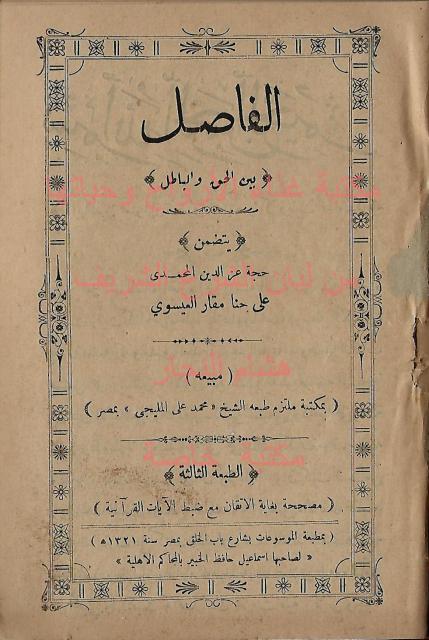 الفاصل
﴿ بين الحق والباطل ﴾
مكتبة غذاء الأرواح وحياتها
﴿ يتضمن ﴾
حجة عز الدين المحمدي
من لبنان الشريف
على حنا مقار العيسوي
هشام النجار
( مبيعه )
( بمكتبة ملتزم طبعه الشيخ « محمد على المليجى » بمصر )
مكتبة خاصة
﴿ الطبعة الثالثة ﴾
( مصححة بغاية الاتقان مع ضبط الآيات القرآنية )
( بمطبعة الموسوعات بشارع باب الخلق بمصر سنة ١٣٢١ﻫ )
« لصاحبها اسماعيل حافظ الخبير بالمحاكم الاهلية »